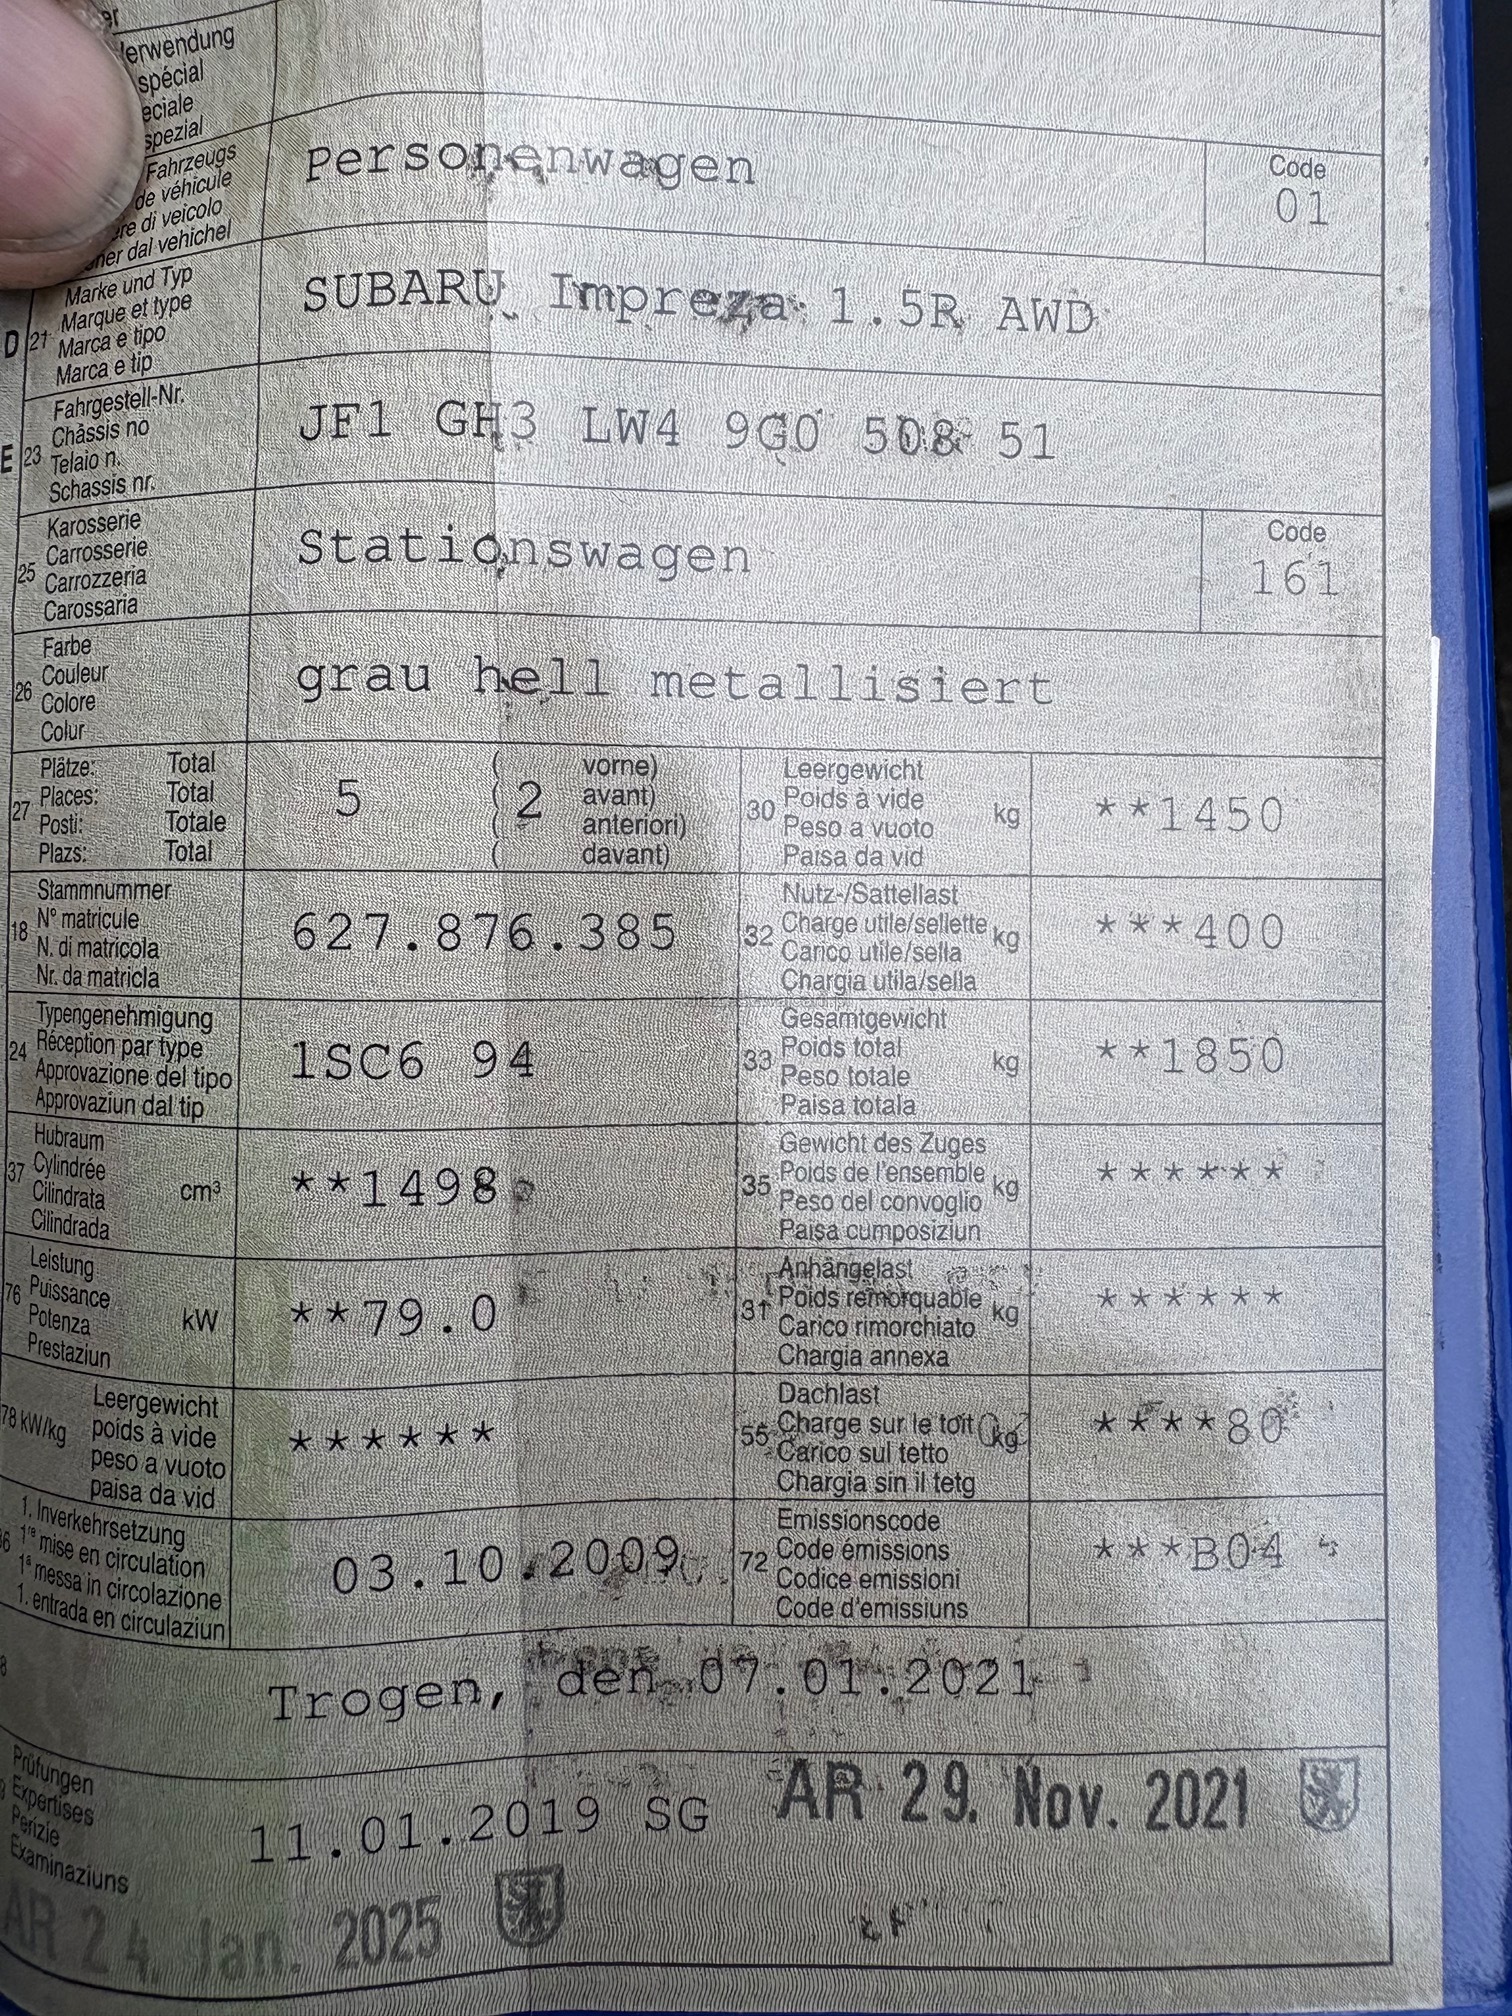 spécial
spezial
Fahrzeugs
de véhicule
di veicolo
dal vehichel
Personenwagen
Code
01
D 21 Marke und Typ
Marque et type
Marca e tipo
Marca e tip
SUBARU Impreza 1.5R AWD
E 23 Fahrgestell-Nr.
Châssis no
Telaio n.
Schassis nr.
JF1 GH3 LW4 9G0 508 51
25 Karosserie
Carrosserie
Carrozzeria
Carossaria
Stationswagen
Code
161
26 Farbe
Couleur
Colore
Colur
grau hell metallisiert
27 Plätze: Total
Places: Total
Posti: Totale
Plazs: Total
5 ( 2 vorne)
( avant)
( anteriori)
( davant)
30 Leergewicht
Poids à vide
Peso a vuoto
Paisa da vid
kg
**1450
18 Stammnummer
N° matricule
N. di matricola
Nr. da matricla
627.876.385
32 Nutz-/Sattellast
Charge utile/sellette
Carico utile/sella
Chargia utila/sella
kg
***400
24 Typengenehmigung
Réception par type
Approvazione del tipo
Approvaziun dal tip
1SC6 94
33 Gesamtgewicht
Poids total
Peso totale
Paisa totala
kg
**1850
37 Hubraum
Cylindrée
Cilindrata
Cilindrada
cm³
**1498
35 Gewicht des Zuges
Poids de l'ensemble
Peso del convoglio
Paisa cumposiziun
kg
******
76 Leistung
Puissance
Potenza
Prestaziun
kW
**79.0
31 Anhängelast
Poids remorquable
Carico rimorchiato
Chargia annexa
kg
******
78 kW/kg Leergewicht
poids à vide
peso a vuoto
paisa da vid
******
55 Dachlast
Charge sur le toit
Carico sul tetto
Chargia sin il tetg
kg
****80
1. Inverkehrsetzung
1re mise en circulation
1a messa in circolazione
1. entrada en circulaziun
03.10.2009
72 Emissionscode
Code émissions
Codice emissioni
Code d'emissiuns
***B04
Trogen, den 07.01.2021
Prüfungen
Expertises
Perizie
Examinaziuns
11.01.2019 SG
AR 29. Nov. 2021
AR 24. Jan. 2025